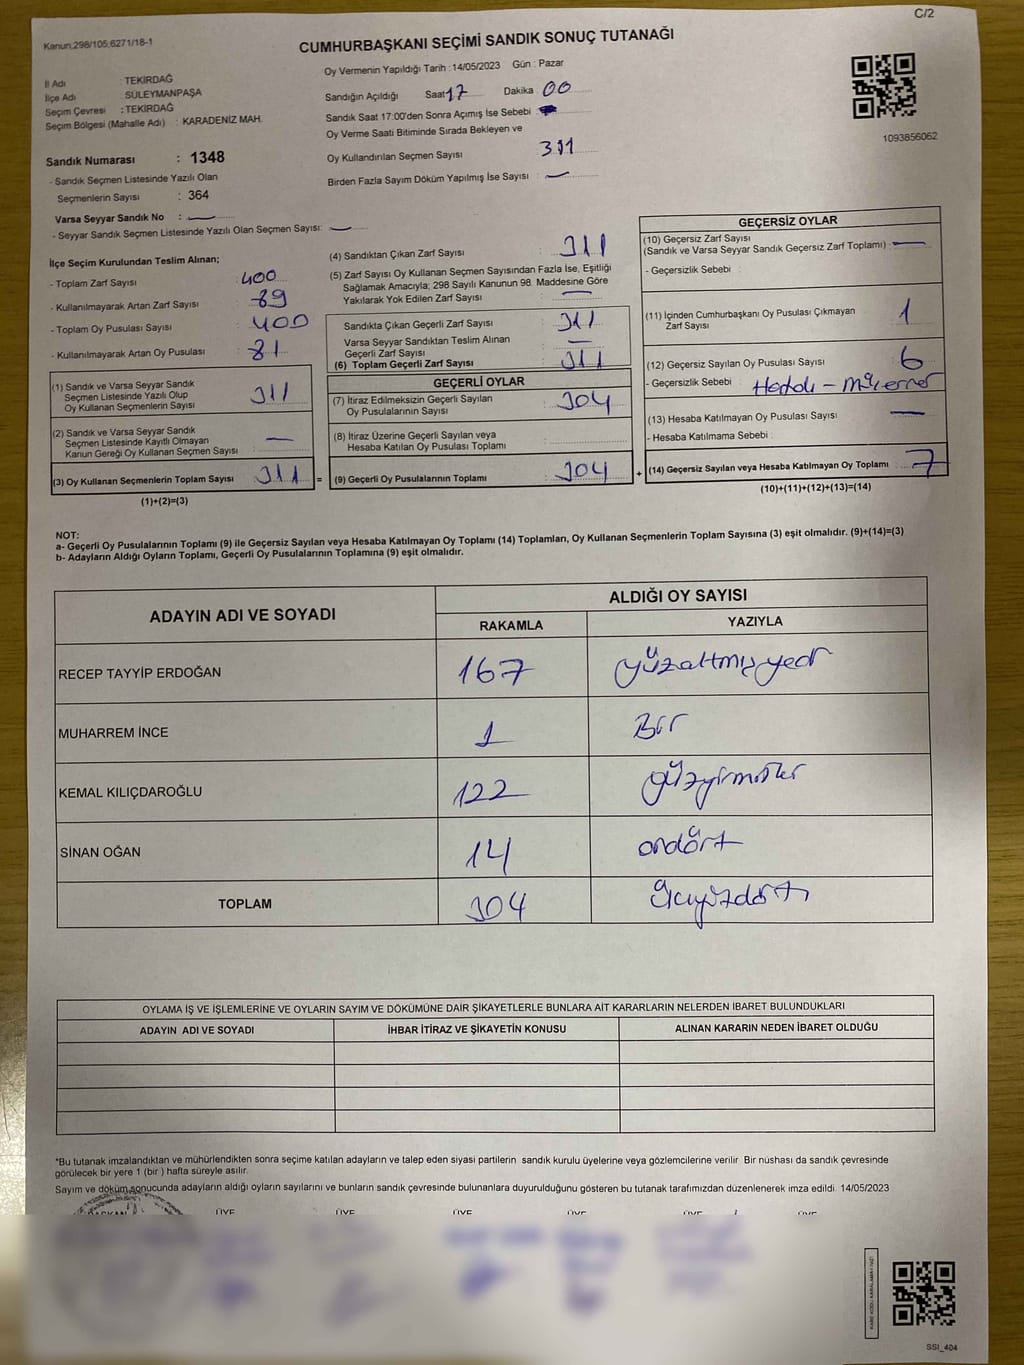 C/2
Kanun;298/105;6271/18-1
CUMHURBAŞKANI SEÇİMİ SANDIK SONUÇ TUTANAĞI
İl Adı : TEKİRDAĞ
İlçe Adı : SÜLEYMANPAŞA
Seçim Çevresi : TEKİRDAĞ
Seçim Bölgesi (Mahalle Adı) : KARADENİZ MAH.
Oy Vermenin Yapıldığı Tarih : 14/05/2023 Gün : Pazar
Sandığın Açıldığı Saat 17 Dakika 00
Sandık Saat 17:00'den Sonra Açımış İse Sebebi :
Oy Verme Saati Bitiminde Sırada Bekleyen ve
Oy Kullandırılan Seçmen Sayısı 311
Birden Fazla Sayım Döküm Yapılmış İse Sayısı : —
1093856062
Sandık Numarası : 1348
- Sandık Seçmen Listesinde Yazılı Olan
Seçmenlerin Sayısı : 364
Varsa Seyyar Sandık No : —
- Seyyar Sandık Seçmen Listesinde Yazılı Olan Seçmen Sayısı: —
İlçe Seçim Kurulundan Teslim Alınan;
- Toplam Zarf Sayısı : 400
- Kullanılmayarak Artan Zarf Sayısı : 89
- Toplam Oy Pusulası Sayısı : 400
- Kullanılmayarak Artan Oy Pusulası : 81
(1) Sandık ve Varsa Seyyar Sandık
Seçmen Listesinde Yazılı Olup
Oy Kullanan Seçmenlerin Sayısı : 311
(2) Sandık ve Varsa Seyyar Sandık
Seçmen Listesinde Kayıtlı Olmayan
Kanun Gereği Oy Kullanan Seçmen Sayısı : —
(3) Oy Kullanan Seçmenlerin Toplam Sayısı : 311 =
(1)+(2)=(3)
(4) Sandıktan Çıkan Zarf Sayısı : 311
(5) Zarf Sayısı Oy Kullanan Seçmen Sayısından Fazla İse, Eşitliği
Sağlamak Amacıyla; 298 Sayılı Kanunun 98. Maddesine Göre
Yakılarak Yok Edilen Zarf Sayısı : —
Sandıkta Çıkan Geçerli Zarf Sayısı : 311
Varsa Seyyar Sandıktan Teslim Alınan
Geçerli Zarf Sayısı : —
(6) Toplam Geçerli Zarf Sayısı : 311
GEÇERLİ OYLAR
(7) İtiraz Edilmeksizin Geçerli Sayılan
Oy Pusulalarının Sayısı : 304
(8) İtiraz Üzerine Geçerli Sayılan veya
Hesaba Katılan Oy Pusulası Toplamı :
(9) Geçerli Oy Pusulalarının Toplamı : 304 +
GEÇERSİZ OYLAR
(10) Geçersiz Zarf Sayısı
(Sandık ve Varsa Seyyar Sandık Geçersiz Zarf Toplamı) : —
- Geçersizlik Sebebi :
(11) İçinden Cumhurbaşkanı Oy Pusulası Çıkmayan
Zarf Sayısı : 1
(12) Geçersiz Sayılan Oy Pusulası Sayısı : 6
- Geçersizlik Sebebi :
(13) Hesaba Katılmayan Oy Pusulası Sayısı : —
- Hesaba Katılmama Sebebi :
(14) Geçersiz Sayılan veya Hesaba Katılmayan Oy Toplamı : 7
(10)+(11)+(12)+(13)=(14)
NOT:
a- Geçerli Oy Pusulalarının Toplamı (9) ile Geçersiz Sayılan veya Hesaba Katılmayan Oy Toplamı (14) Toplamları, Oy Kullanan Seçmenlerin Toplam Sayısına (3) eşit olmalıdır. (9)+(14)=(3)
b- Adayların Aldığı Oyların Toplamı, Geçerli Oy Pusulalarının Toplamına (9) eşit olmalıdır.
ADAYIN ADI VE SOYADI ALDIĞI OY SAYISI
RAKAMLA YAZIYLA
RECEP TAYYİP ERDOĞAN 167 yüzaltmışyedi
MUHARREM İNCE 1 Bir
KEMAL KILIÇDAROĞLU 122 yüzyirmiiki
SİNAN OĞAN 14 ondört
TOPLAM 304 üçyüzdört
OYLAMA İŞ VE İŞLEMLERİNE VE OYLARIN SAYIM VE DÖKÜMÜNE DAİR ŞİKAYETLERLE BUNLARA AİT KARARLARIN NELERDEN İBARET BULUNDUKLARI
ADAYIN ADI VE SOYADI İHBAR İTİRAZ VE ŞİKAYETİN KONUSU ALINAN KARARIN NEDEN İBARET OLDUĞU
*Bu tutanak imzalandıktan ve mühürlendikten sonra seçime katılan adayların ve talep eden siyasi partilerin sandık kurulu üyelerine veya gözlemcilerine verilir. Bir nüshası da sandık çevresinde
görülecek bir yere 1 (bir) hafta süreyle asılır.
Sayım ve döküm sonucunda adayların aldığı oyların sayılarını ve bunların sandık çevresinde bulunanlara duyurulduğunu gösteren bu tutanak tarafımızdan düzenlenerek imza edildi. 14/05/2023
BAŞKAN ÜYE ÜYE ÜYE ÜYE ÜYE ÜYE
SSI_404